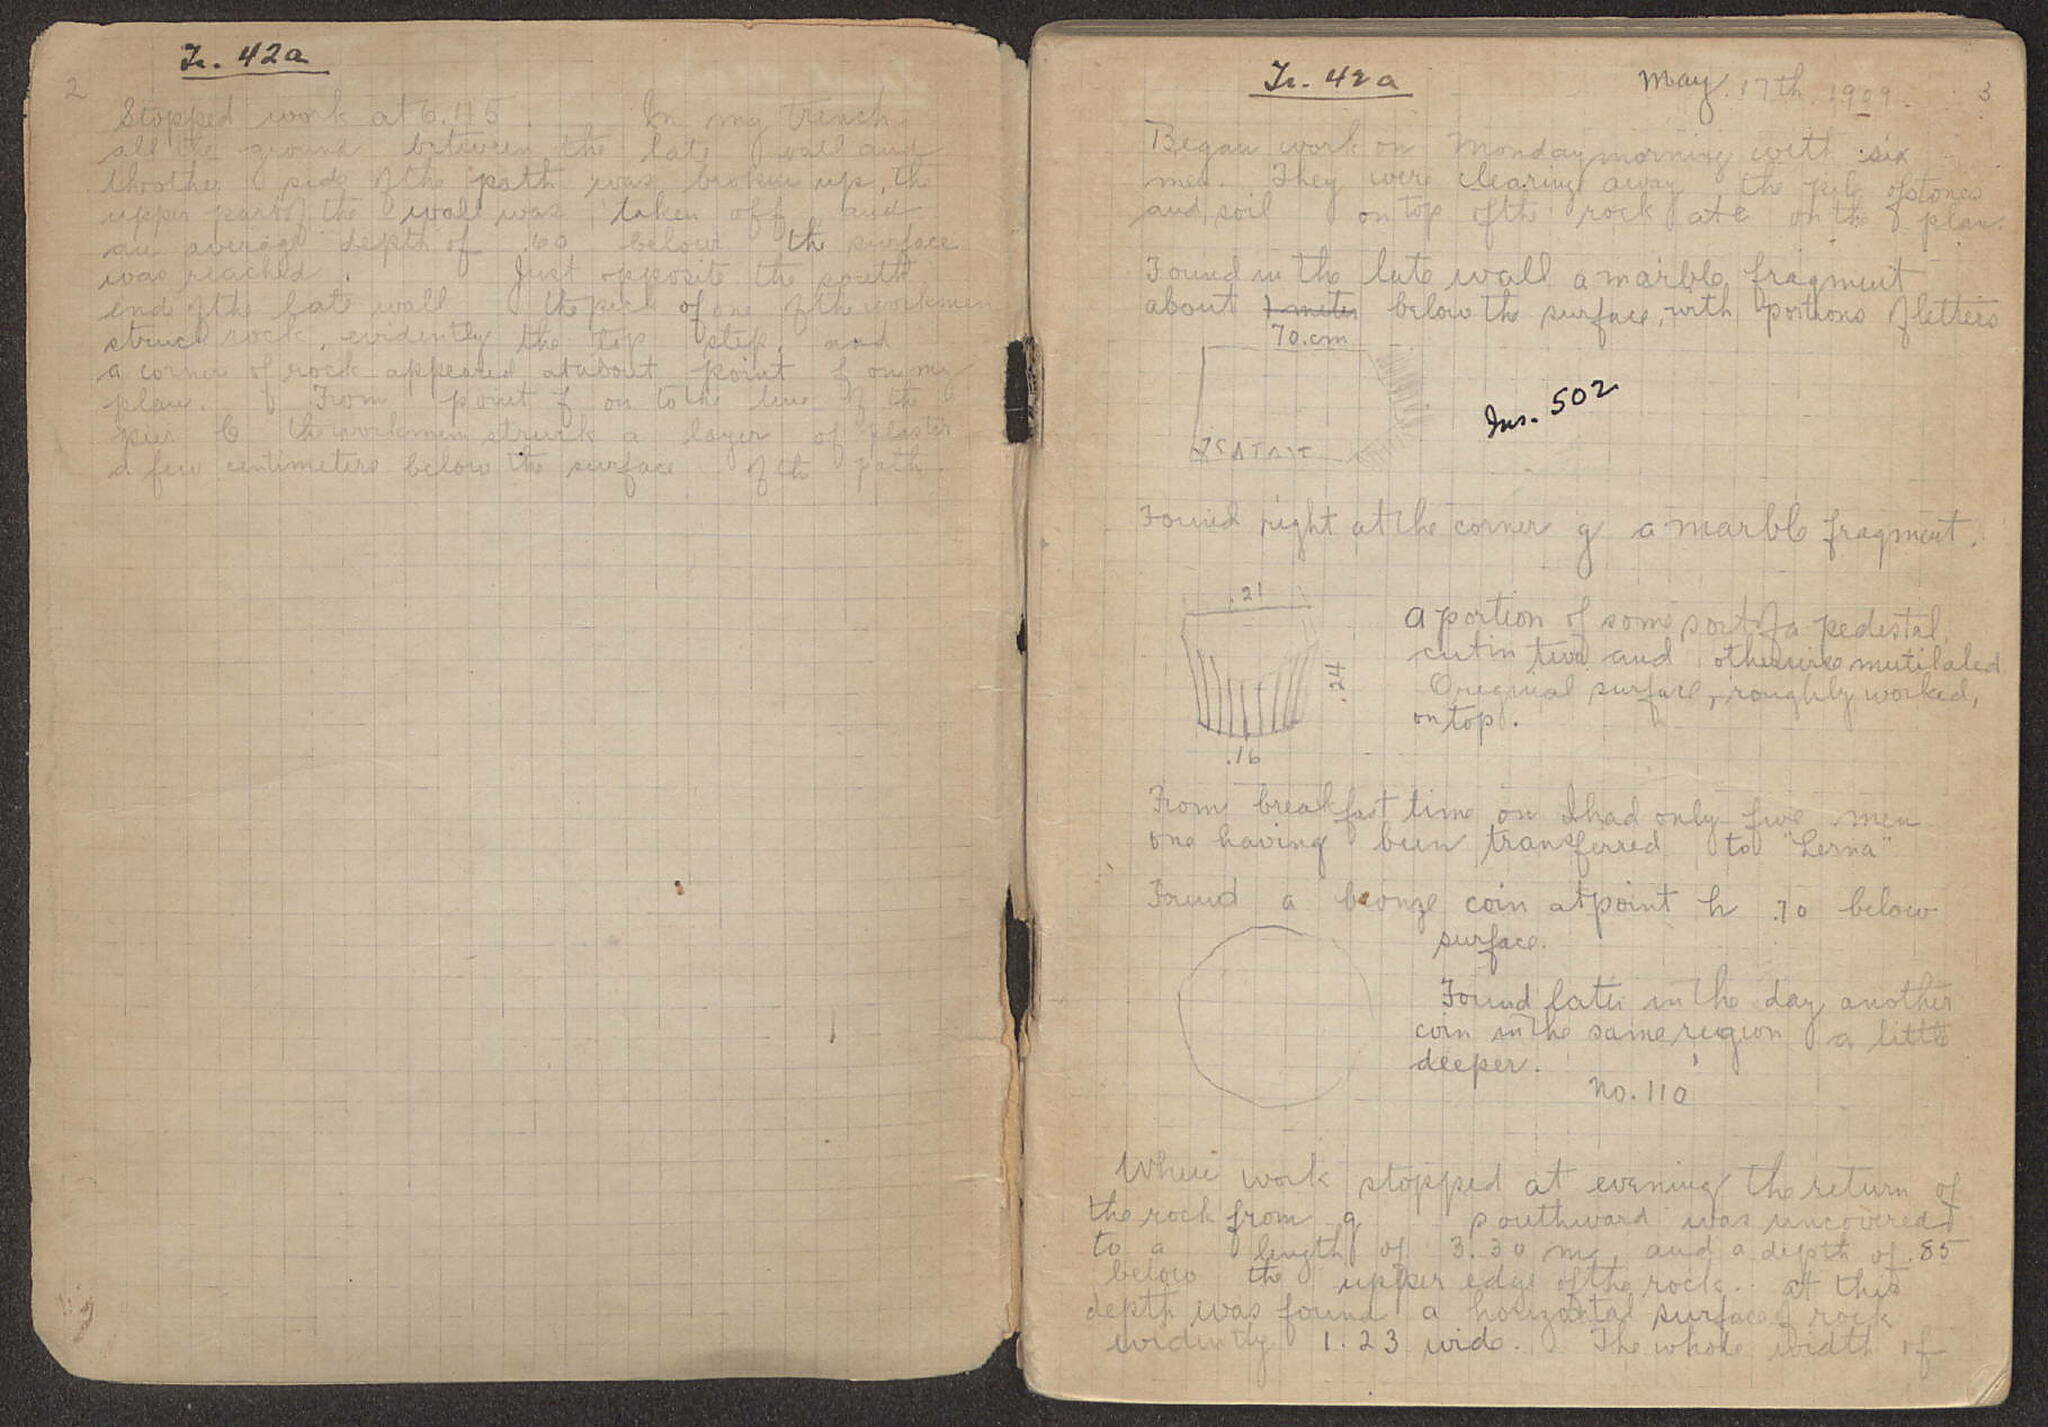 Tr. 42a
2
Stopped work at 6.45. In my trench
all the ground between the late wall and
the other side of the path was broken up, the
upper part of the wall was taken off and
an average depth of .60 below the surface
was reached. Just opposite the south
end of the late wall the pick of one of the workmen
struck rock, evidently the top step, and
a corner of rock appeared at about point f on my
plan. From point f on to the line of the
pier b the workmen struck a layer of plaster
a few centimeters below the surface of the path
Tr. 42a
May. 17th 1909.
3
Began work on Monday morning with six
men. They were clearing away the pile of stones
and soil on top of the rock at e on the plan.
Found in the late wall a marble fragment
about 1 meter below the surface, with portions of letters
70.cm
Ins. 502
Found right at the corner g a marble fragment.
.21
.24
.16
a portion of some sort of a pedestal,
cut in two and otherwise mutilated
Original surface, roughly worked,
on top.
From breakfast time on I had only five men
one having been transferred to "Lerna"
Found a bronze coin at point h .70 below
surface.
Found later in the day another
coin in the same region a little
deeper.
No. 110
When work stopped at evening the return of
the rock from g southward was uncovered
to a length of 3.30 m, and a depth of .85
below the upper edge of the rock. At this
depth was found a horizontal surface of rock
evidently 1.23 wide. The whole width of